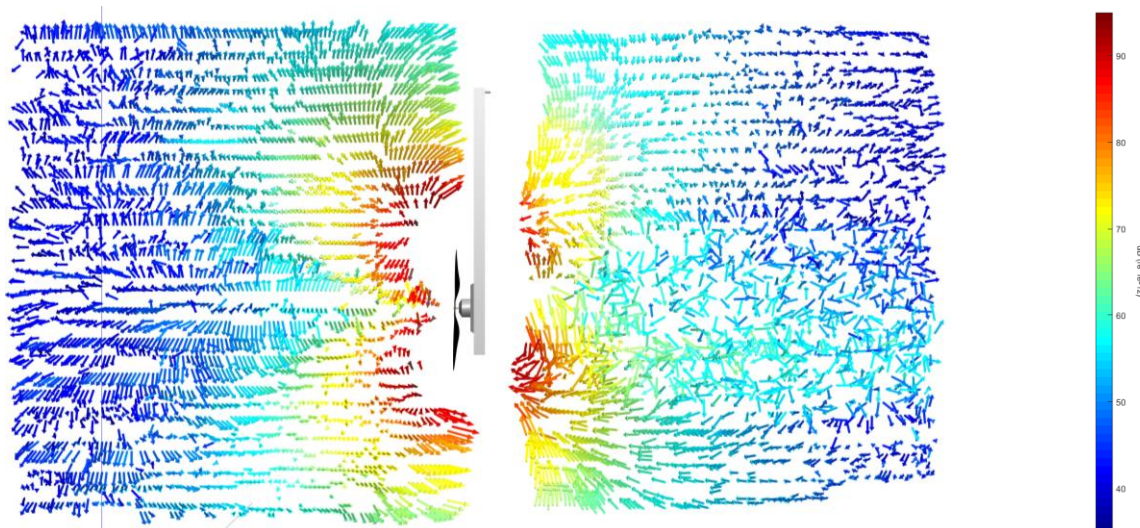 90
80
70
60
50
40